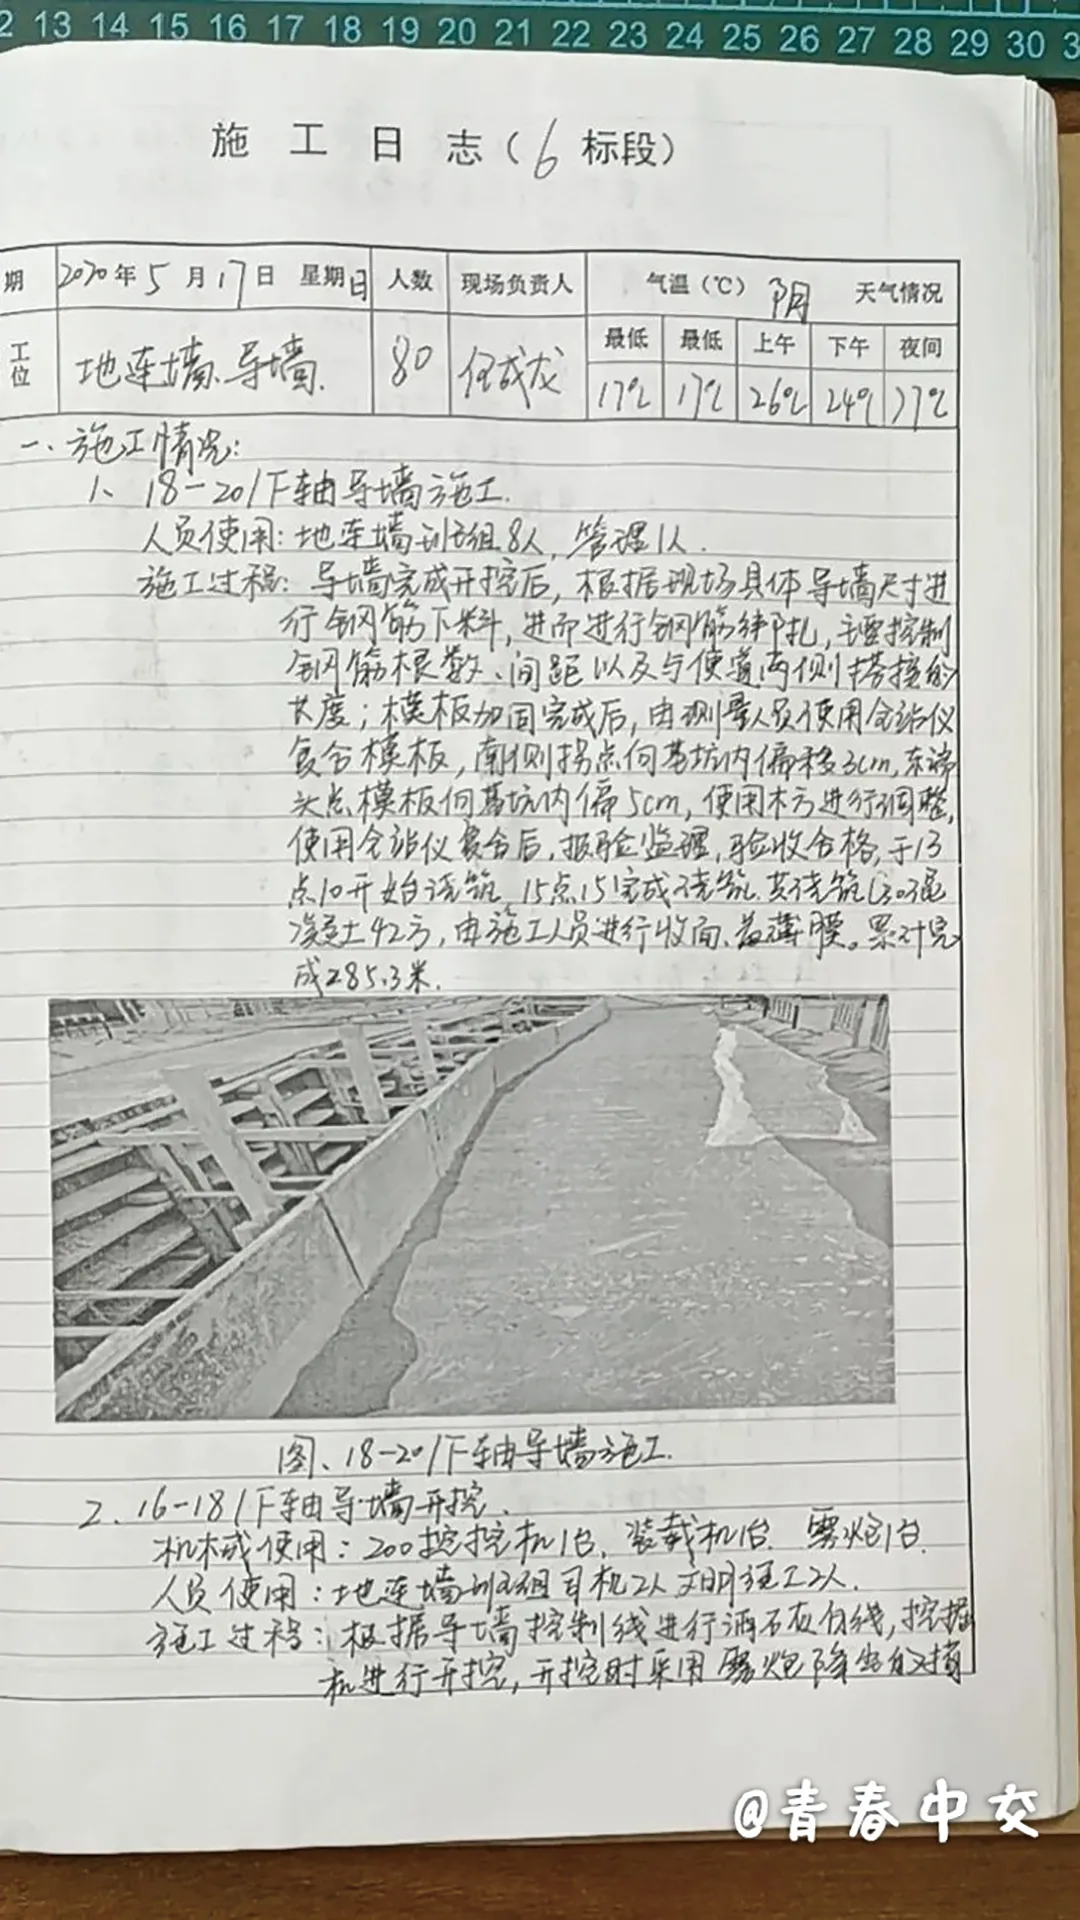 2 13 14 15 16 17 18 19 20 21 22 23 24 25 26 27 28 29 30 3
施工日志(6标段)
期 2020年5月17日 星期日 人数 现场负责人 气温(℃) 阴 天气情况
工位 地连墙、导墙. 80 任成龙 最低 最低 上午 下午 夜间
17℃ 17℃ 26℃ 24℃ 17℃
一、施工情况:
1、18-20/下轴导墙施工.
人员使用:地连墙班组8人,管理1人.
施工过程:导墙完成开挖后,根据现场具体导墙尺寸进
行钢筋下料,进而进行钢筋绑扎,主要控制
钢筋根数、间距以及与便道两侧搭接的
长度;模板加固完成后,由测量人员使用全站仪
复合模板,南侧拐点向基坑内偏移3cm,东端
头点模板向基坑内偏5cm,使用木方进行调整,
使用全站仪复合后,报验监理,验收合格,于13
点10开始浇筑 15点15完成浇筑.共浇筑C30混
凝土42方,由施工人员进行收面、盖薄膜。累计完
成285.3米.
图、18-20/下轴导墙施工.
2、16-18/下轴导墙开挖.
机械使用:200挖挖机1台,装载机1台.雾炮1台.
人员使用:地连墙班组司机2人文明施工2人.
施工过程:根据导墙控制线进行洒石灰白线,挖掘
机进行开挖,开挖时采用雾炮降尘
@青春中交